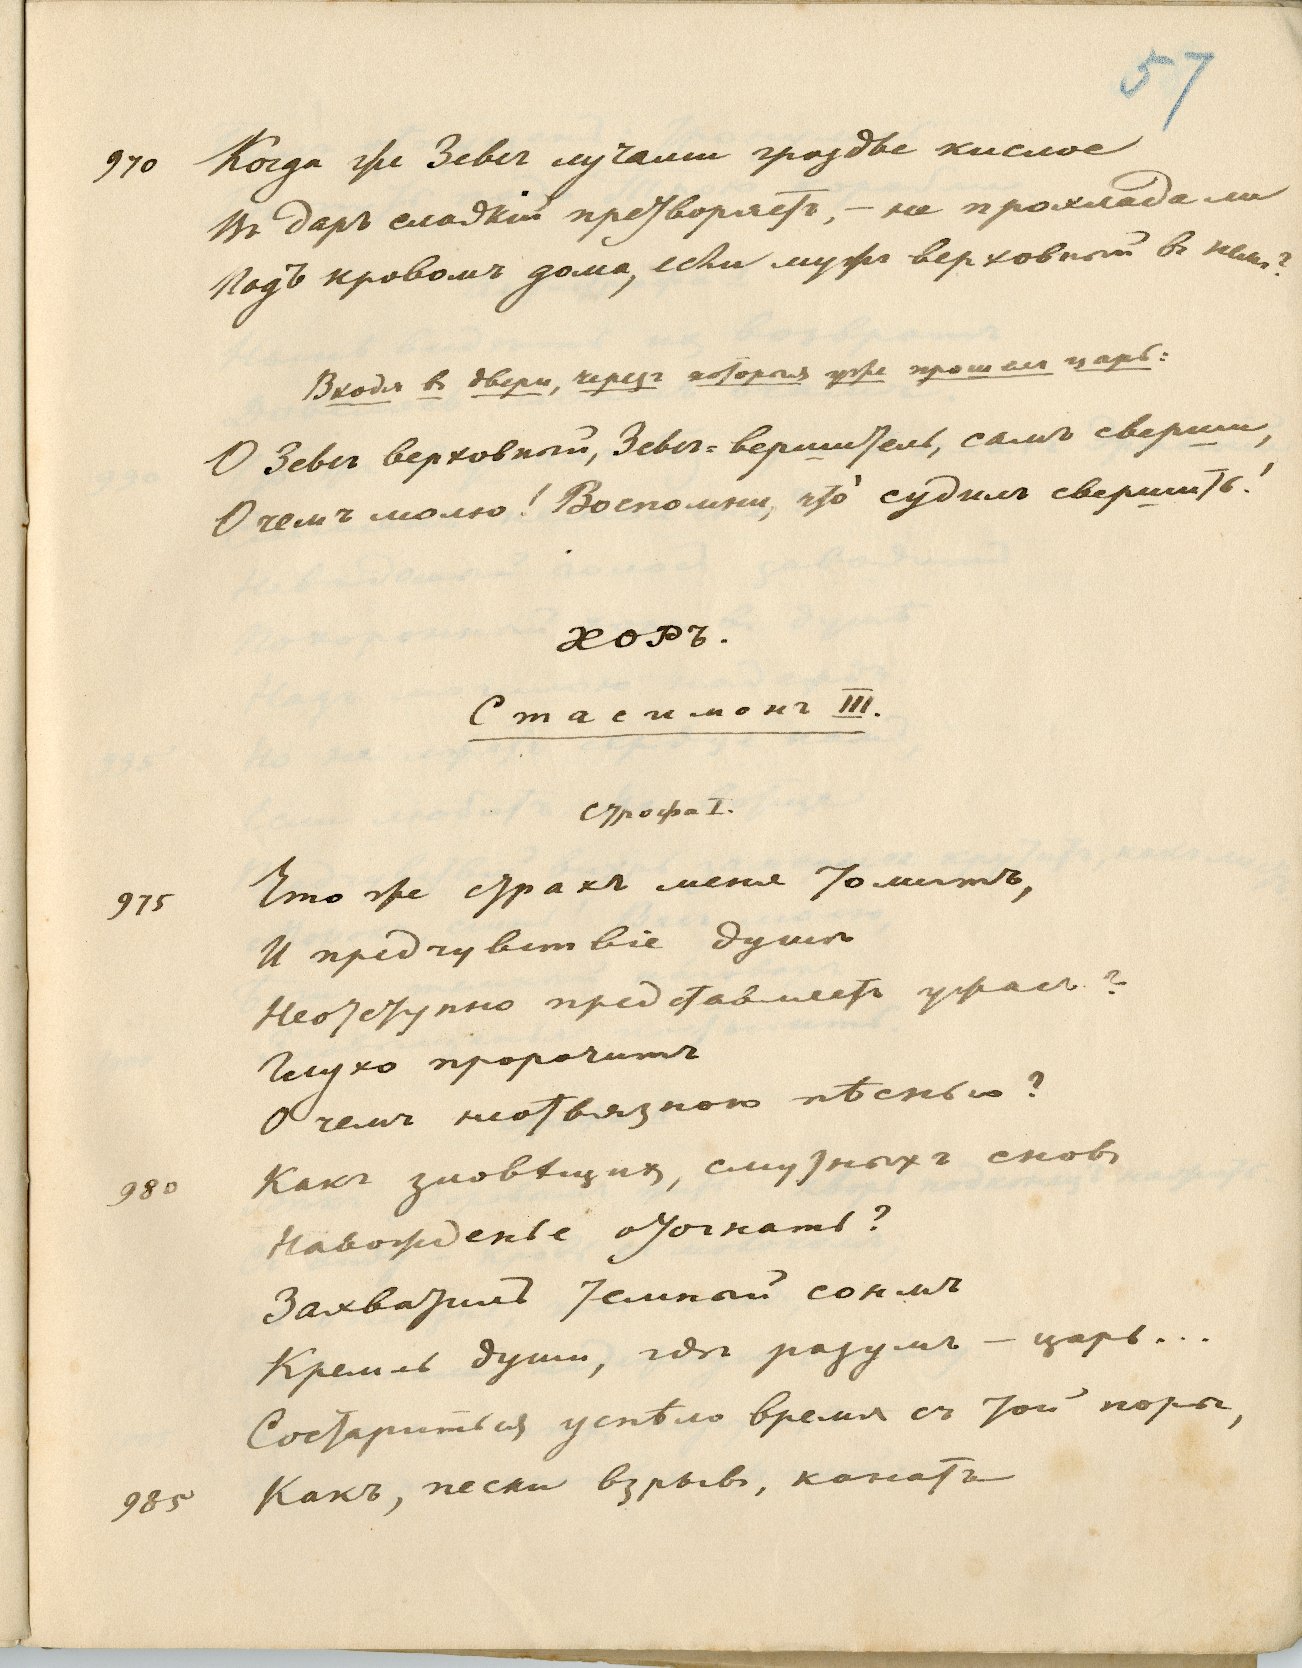 57
970 Когда же Зевсъ лучами гроздье кислое
Въ даръ сладкій претворяетъ, — не прохлада ли
Подъ кровомъ дома, если мужъ верховный въ немъ?
Входя въ двери, черезъ которыя уже прошелъ царь:
О Зевсъ верховный, Зевсъ-вершитель, самъ сверши,
О чемъ молю! Воспомни, что́ судилъ свершить!
ХОРЪ.
Стасимонъ III.
Строфа I.
975 Что же страхъ меня томитъ,
И предчувствіе душѣ
Неотступно представляетъ ужасъ?
Глухо пророчитъ
О чемъ неотвязною пѣснью?
980 Какъ зловѣщихъ, смутныхъ сновъ
Навожденье отогнать?
Захватилъ темный сонмъ
Кремль души, гдѣ разумъ — царь...
Состариться успѣло время съ той поры,
985 Какъ, пески взрывъ, канатъ